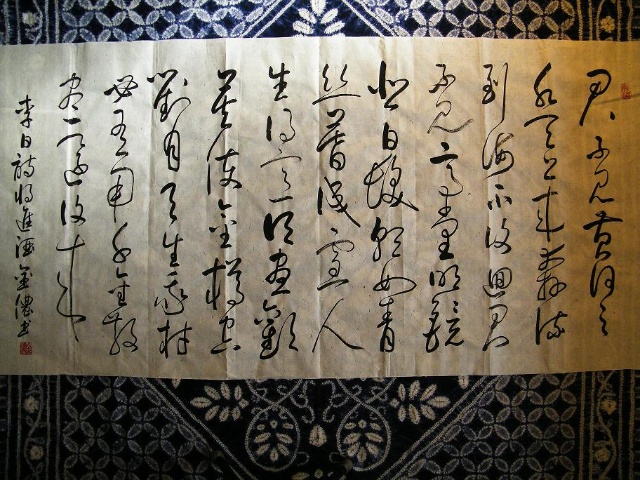 君不見黃河之
水天上來奔流
到海不復迴君
不見高堂明鏡
悲白髮朝如青
絲暮成雪人
生得意須盡歡
莫使金樽空
對月天生我材
必有用千金散
盡還復來
李白詩將進酒金儂書